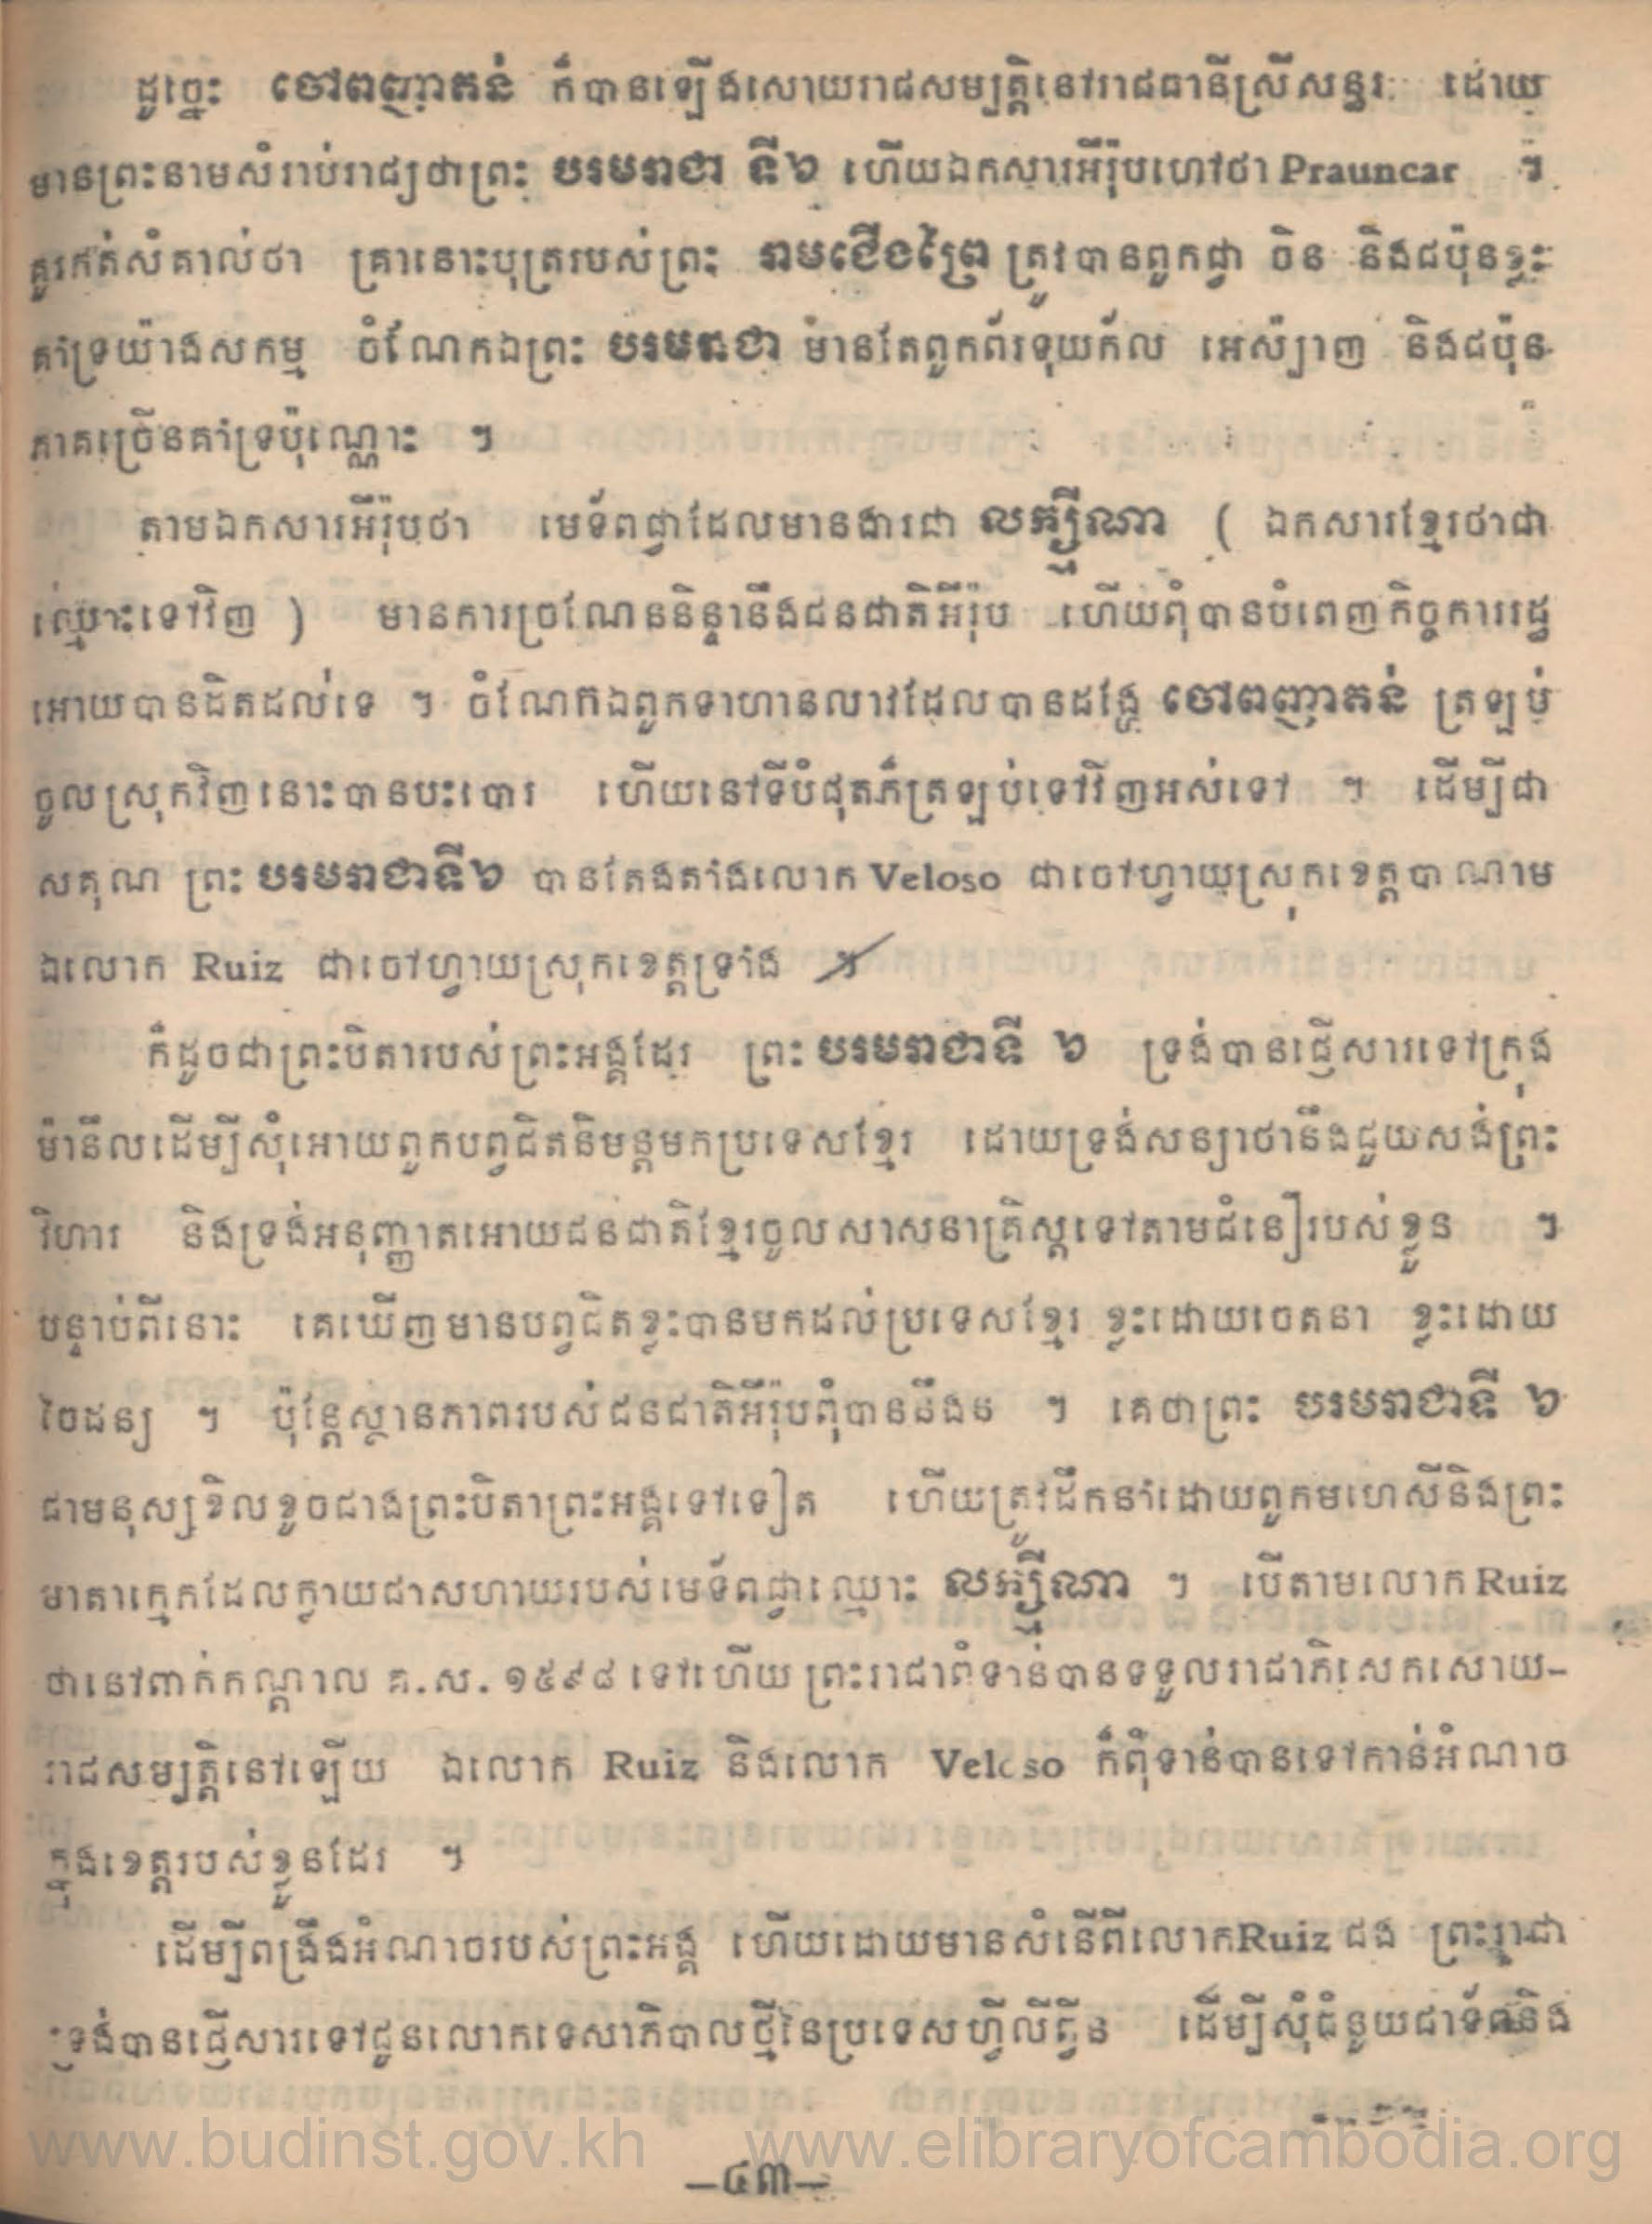 ដូច្នេះ ចៅពញាតន់ ក៏បានឡើងសោយរាជសម្បត្តិនៅរាជធានីស្រីសន្ធរ ដោយ
មានព្រះនាមសំរាប់រាជ្យថាព្រះ បរមរាជា ទី៦ ហើយឯកសារអឺរ៉ុបហៅថា Prauncar ។
គួរកត់សំគាល់ថា គ្រានោះបុត្ររបស់ព្រះ រាមជើងព្រៃ ត្រូវបានពួកជ្វា ចិន និងជប៉ុនខ្លះ
គាំទ្រយ៉ាងសកម្ម ចំណែកឯព្រះ បរមរាជា មានតែពួកព័រទុយក័ល អេស្ប៉ាញ និងជប៉ុន
ភាគច្រើនគាំទ្រប៉ុណ្ណោះ ។
តាមឯកសារអឺរ៉ុបថា មេទ័ពជ្វាដែលមានងារជា លក្ស្មីណា ( ឯកសារខ្មែរថាជា
ឈ្មោះទៅវិញ ) មានការច្រណែននិន្ទានឹងជនជាតិអឺរ៉ុប ហើយពុំបានបំពេញកិច្ចការរដ្ឋ
អោយបានដិតដល់ទេ ។ ចំណែកឯពួកទាហានលាវដែលបានដង្ហែ ចៅពញាតន់ ត្រឡប់
ចូលស្រុកវិញនោះបានបះបោរ ហើយនៅទីបំផុតក៏ត្រឡប់ទៅវិញអស់ទៅ ។ ដើម្បីជា
សគុណ ព្រះ បរមរាជាទី៦ បានតែងតាំងលោក Veloso ជាចៅហ្វាយស្រុកខេត្តបាណាម
ឯលោក Ruiz ជាចៅហ្វាយស្រុកខេត្តទ្រាំង ។
ក៏ដូចជាព្រះបិតារបស់ព្រះអង្គដែរ ព្រះ បរមរាជាទី ៦ ទ្រង់បានផ្ញើសារទៅក្រុង
ម៉ានីលដើម្បីសុំអោយពួកបព្វជិតនិមន្តមកប្រទេសខ្មែរ ដោយទ្រង់សន្យាថានឹងជួយសង់ព្រះ
វិហារ និងទ្រង់អនុញ្ញាតអោយជនជាតិខ្មែរចូលសាសនាគ្រិស្តទៅតាមជំនឿរបស់ខ្លួន ។
បន្ទាប់ពីនោះ គេឃើញមានបព្វជិតខ្លះបានមកដល់ប្រទេសខ្មែរ ខ្លះដោយចេតនា ខ្លះដោយ
ចៃដន្យ ។ ប៉ុន្តែស្ថានភាពរបស់ជនជាតិអឺរ៉ុបពុំបាននឹងន ។ គេថាព្រះ បរមរាជាទី ៦
ជាមនុស្សខិលខូចជាងព្រះបិតាព្រះអង្គទៅទៀត ហើយត្រូវដឹកនាំដោយពួកមហេសីនិងព្រះ
មាតាក្មេកដែលក្លាយជាសហាយរបស់មេទ័ពជ្វាឈ្មោះ លក្ស្មីណា ។ បើតាមលោក Ruiz
ថានៅពាក់កណ្តាល គ.ស. ១៥៩៨ ទៅហើយ ព្រះរាជាពុំទាន់បានទទួលរាជាភិសេកសោយ-
រាជសម្បត្តិនៅឡើយ ឯលោក Ruiz និងលោក Veloso ក៏ពុំទាន់បានទៅកាន់អំណាច
ក្នុងខេត្តរបស់ខ្លួនដែរ ។
ដើម្បីពង្រឹងអំណាចរបស់ព្រះអង្គ ហើយដោយមានសំនើពីលោកRuiz ផង ព្រះរាជា
ទ្រង់បានផ្ញើសារទៅជូនលោកទេសាភិបាលថ្មីនៃប្រទេសហ្វីលីព្វីន ដើម្បីសុំជំនួយជាទ័ពនិង
www.budinst.gov.kh www.elibraryofcambodia.org
—៤៣—